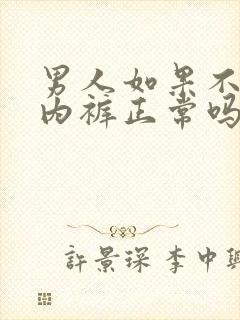 男人如果不
内裤正常吗
許景琛 李中